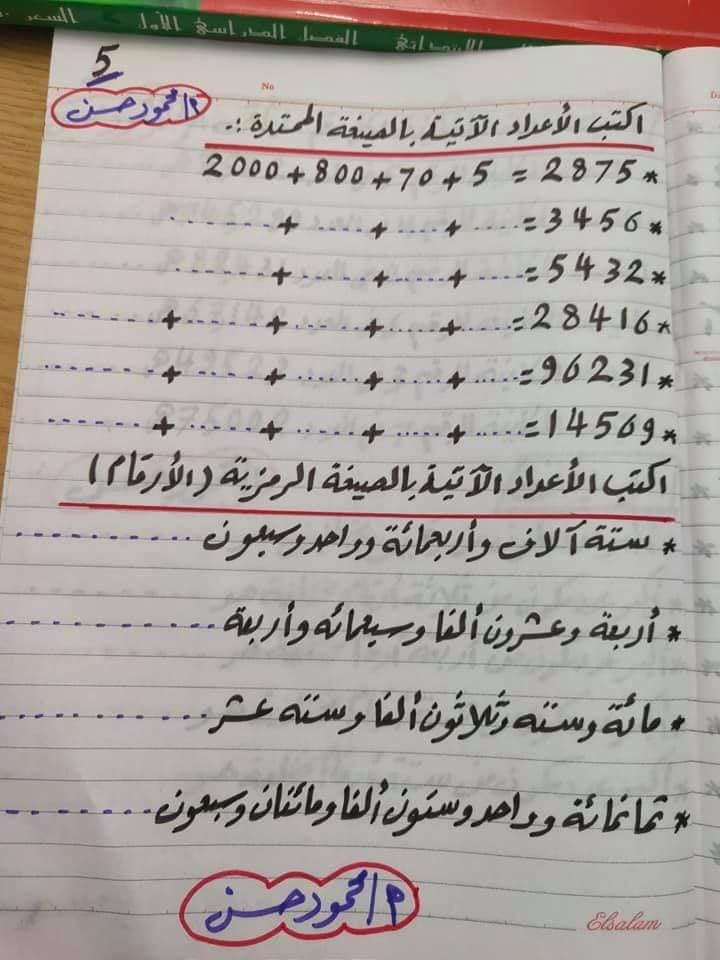 الابتدائي الفصل الدراسي الأول السعر
5
No
م/محمود حسن
اكتب الأعداد الآتية بالصيغة الممتدة :-
* 2875 = 5 + 70 + 800 + 2000
* 3456 = ..... + ..... + ..... + .....
* 5432 = ..... + ..... + ..... + .....
* 28416 = ..... + ..... + ..... + ..... + .....
* 96231 = ..... + ..... + ..... + ..... + .....
* 14569 = ..... + ..... + ..... + ..... + .....
اكتب الأعداد الآتية بالصيغة الرمزية (الأرقام)
* ستة آلاف وأربعمائة وواحد وسبعون ..........
* أربعة وعشرون ألفا وسبعمائه وأربعة ..........
* مائة وسته وثلاثون ألفا وسته عشر ..........
* ثمانمائة وواحد وستون ألفا ومائتان وسبعون ..........
م/محمود حسن
Elsalam